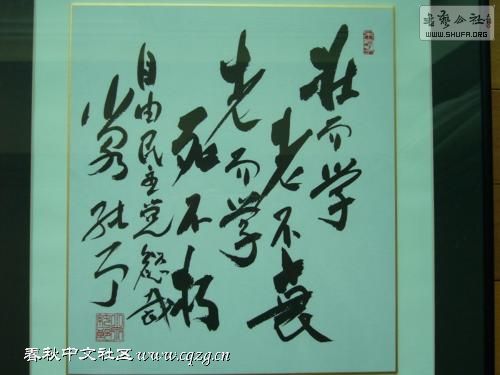 書藝公社
WWW.SHUFA.ORG
壮而学
老不衰
老而学
死不朽
自由民主党総裁
小泉
春秋中文社区www.cqzg.cn